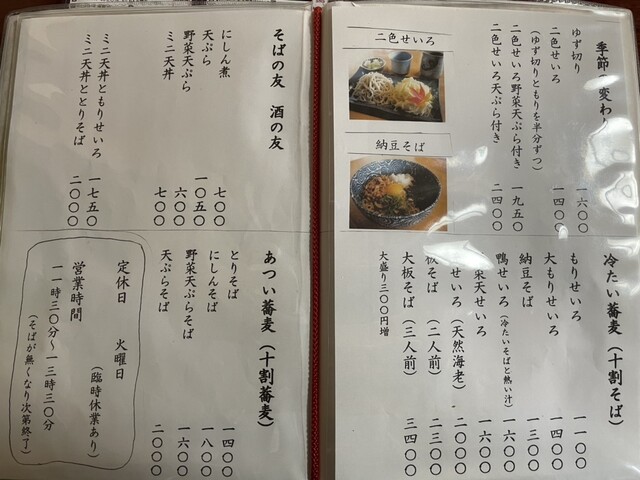 季節 変わり
ゆず切り 一六〇〇
二色せいろ 一四〇〇
(ゆず切りともりを半分ずつ)
二色せいろ野菜天ぷら付き 一九五〇
二色せいろ天ぷら付き 二四〇〇
二色せいろ
納豆そば
冷たい蕎麦(十割そば)
もりせいろ 一一〇〇
大もりせいろ 一四〇〇
納豆そば 一三〇〇
鴨せいろ(冷たいそばと熱い汁) 一六〇〇
菜天せいろ 一六〇〇
せいろ(天然海老) 二〇〇〇
板そば(二人前) 二三〇〇
大板そば(三人前) 三四〇〇
大盛り三〇〇円増
そばの友 酒の友
にしん煮 七〇〇
天ぷら 一〇五〇
野菜天ぷら 六〇〇
ミニ天丼 七〇〇
ミニ天丼ともりせいろ 一七五〇
ミニ天丼ととりそば 二〇〇〇
あつい蕎麦(十割蕎麦)
とりそば 一四〇〇
にしんそば 一八〇〇
野菜天ぷらそば 一六〇〇
天ぷらそば 二〇〇〇
定休日 火曜日
(臨時休業あり)
営業時間
一一時三〇分~一三時三〇分
(そばが無くなり次第終了)